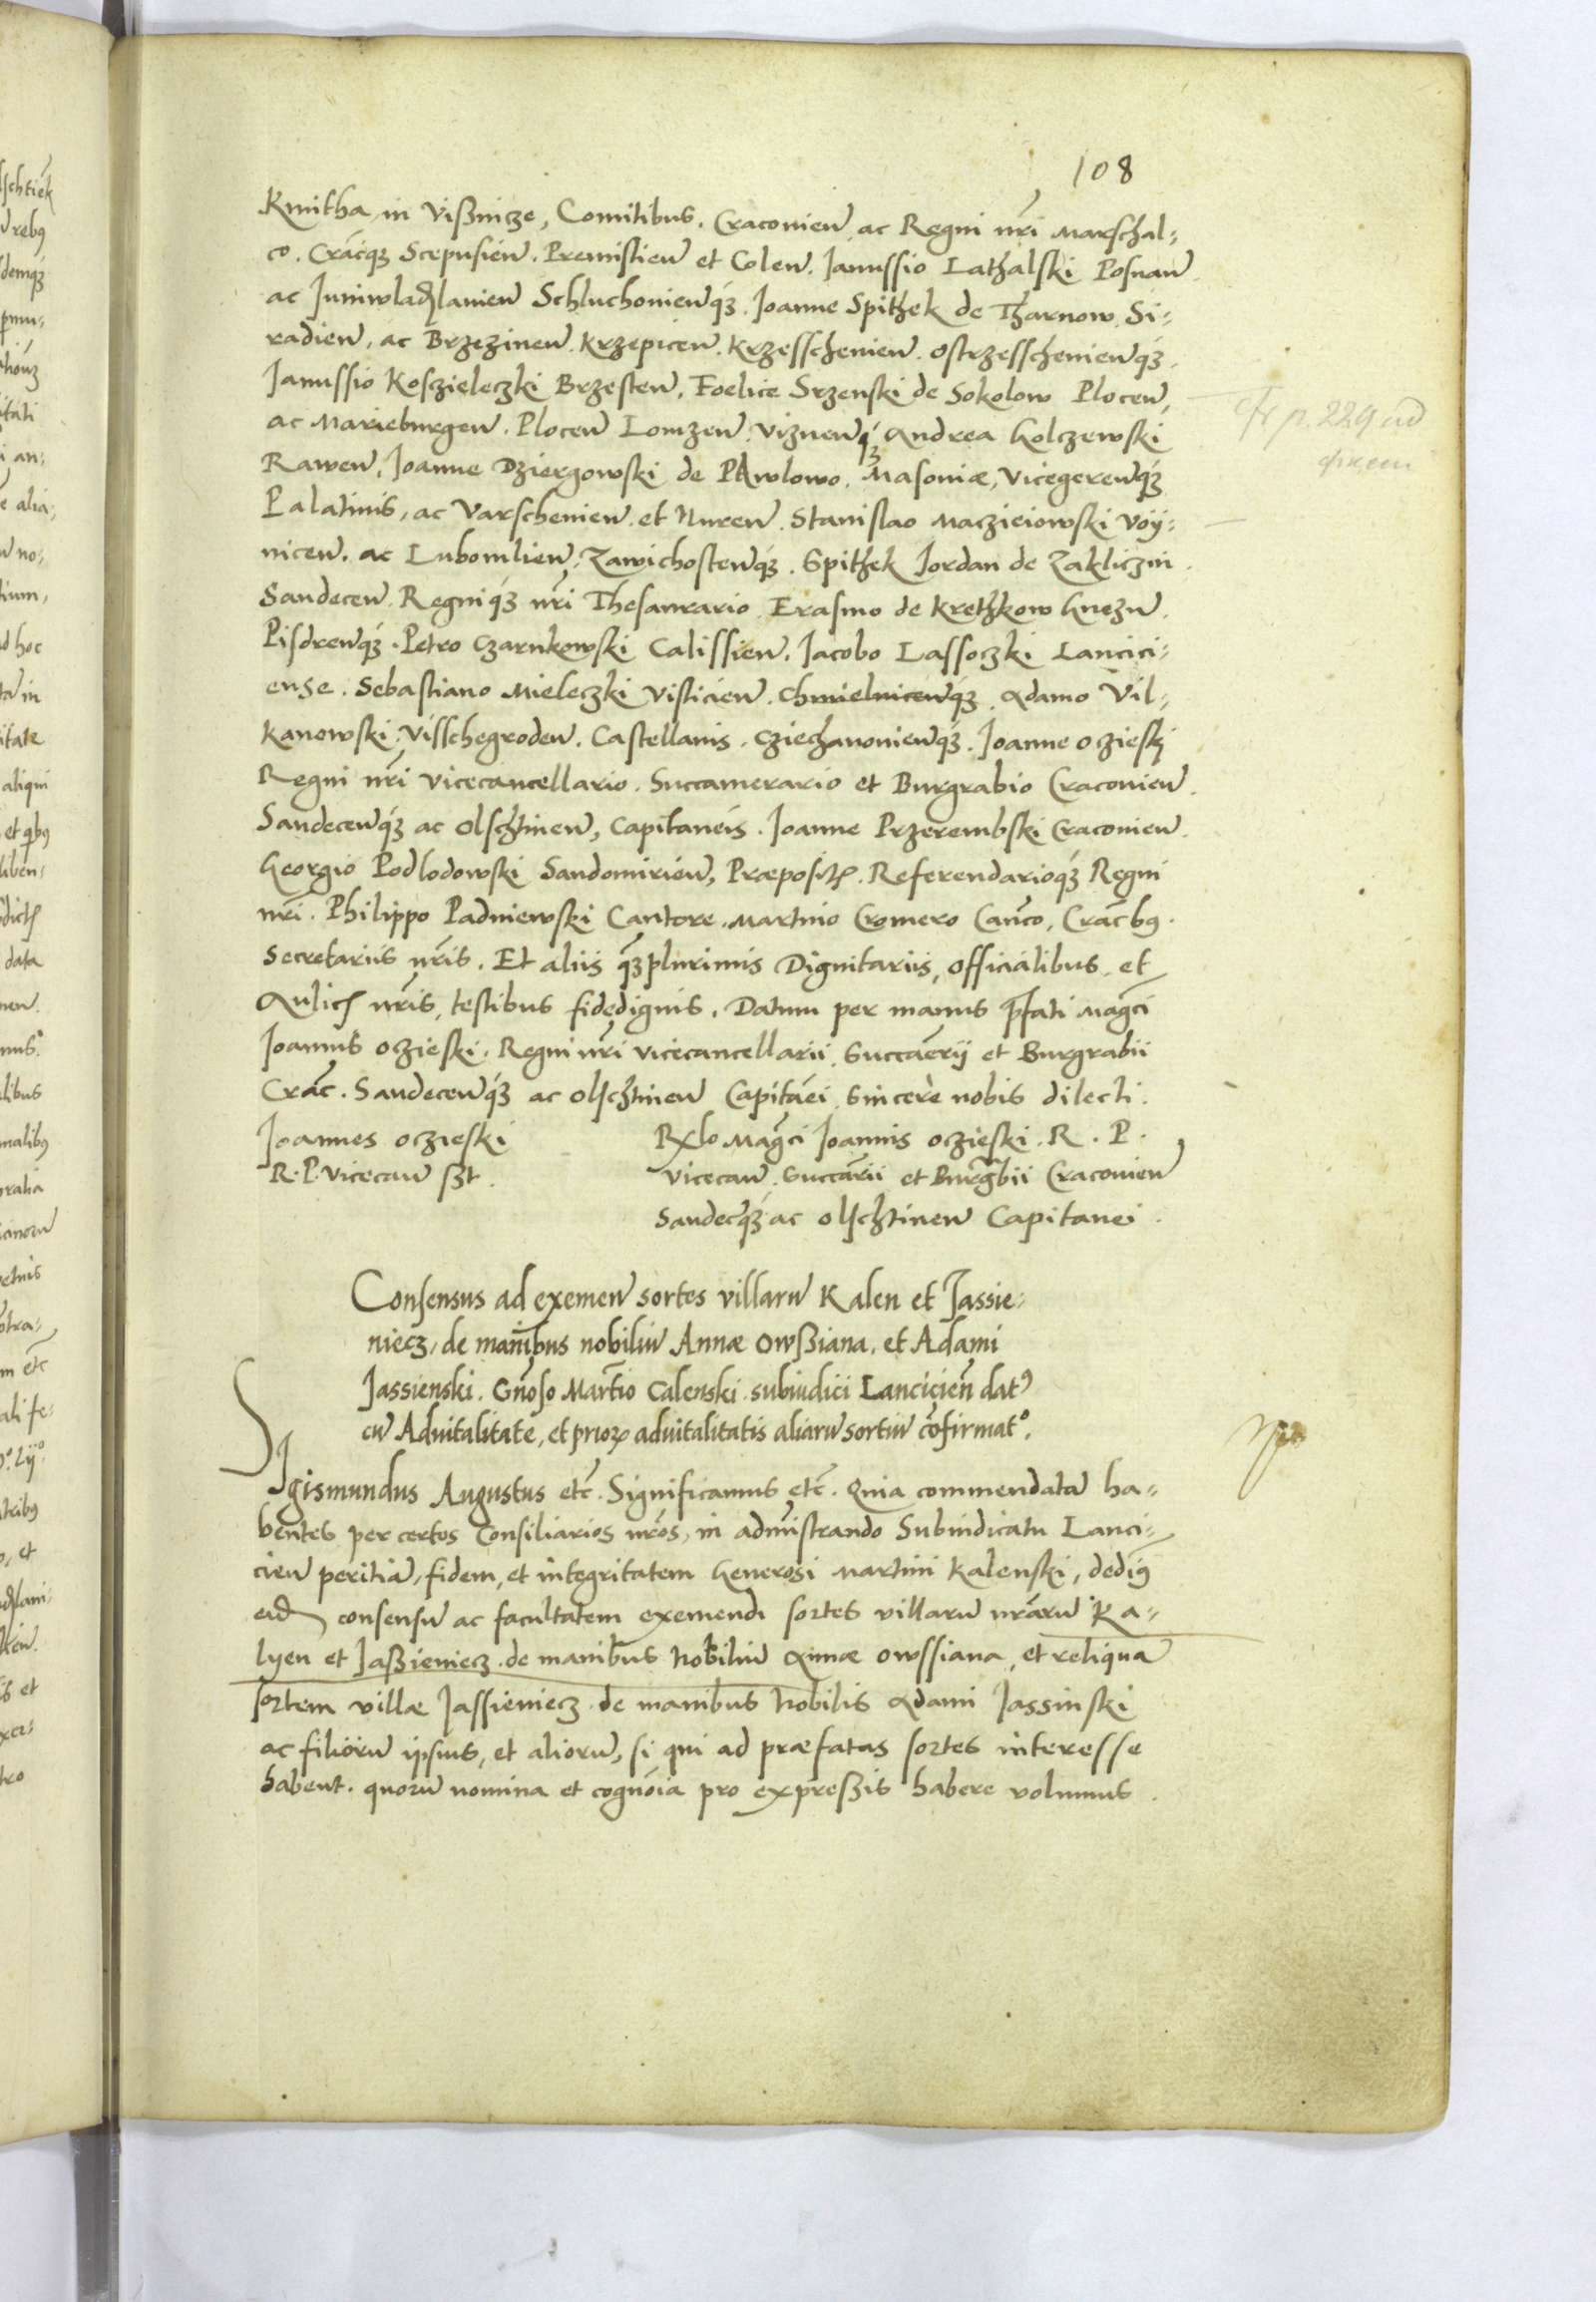 108
Kmitha in Vißnicze, Comitibus. Cracovien̄ ac Regni nr̄i Marschal=
co. Crac̄q₃ Scepusien̄. Premislien̄ et Colen̄. Janussio Lathalski Posnan̄
ac Juniwladislavien̄ Schluchovien̄q₃. Joanne Spithek de Tharnow Si=
radien̄, ac Brzezinen̄ Krzepicen̄. Krzesschenien̄. Ostrzesschenien̄q₃.
Janussio Kosczieleczki Brzesten̄, Foelice Srzenski de Sokolow Plocen̄,
ac Marieburgen̄. Plocen̄ Lomzen̄ Viznen̄q₃ Andrea Golczewski
Rawen̄, Joanne Dziergowski de PAwlowo. Masoviæ, Vicegeren̄q₃
Palatinis, ac Varschevien̄ et Nuren̄. Stanislao Maczieiowski Voy=
nicen̄. ac Lubomlien̄, Zawichosten̄q₃. Spithek Jordan de Zakliczin
Sandecen̄ Regniq₃ nr̄i Thesaurario Erasmo de Krethkow Gnezn̄.
Pisdren̄q₃. Petro Czarnkowski Calissien̄. Jacobo Lassoczki Lancici=
ense. Sebastiano Mieleczki Visticien̄. Chmielnicen̄q₃. Adamo Vil=
kanowski Visschegroden̄. Castellanis. Cziechanovien̄q₃. Joanne Oczieski
Regni nr̄i Vicecancellario. Succamerario et Burgrabio Cracovien̄.
Sandecen̄q₃ ac Olschtinen̄, Capitaneis. Joanne Przerembski Cracovien̄.
Georgio Podlodowski Sandomirien̄, Præposit̄. Referendarioq₃ Regni
nr̄i. Philippo Padniewski Cantore, Martino Cromero Can̄co, Crac̄b9.
Secretariis nr̄is. Et aliis q̄₃plurimis Dignitariis, Officialibus, et
Aulic̄ nr̄is, testibus fidedignis. Datum per manus p̄fati Maḡci
Joannis Oczieski, Regni nr̄i Vicecancellarii, Succam̄erij et Burgrabii
Crac̄. Sandecen̄q₃ ac Olschtinen̄ Capitān̄ei Sincere nobis dilecti.
Joannes Oczieski
R. P. Vicecan̄ sz̄t.
Rx̄lo Maḡci Joannis Oczieski. R. P.
Vicecan̄. Succār̄ii et Burgr̄bii Cracovien̄
Sandec̄q₃ ac Olschtinen̄ Capitanei.
Consensus ad exemen̄ sortes villarū Kalen et Jassie=
niecz, de manibus nobiliū Annæ Owßiana, et Adami
Jassienski. Gn̄oso Mart̄io Calenski subiudici Lancicien̄ dat9
cū Advitalitate, et prioꝝ advitalitatis aliarū sortiū cōfirmat°.
Sigismundus Augustus etc̄. Significamus etc̄. Quia commendatā ha=
bentes per certos Consiliarios nr̄os, in adm̄istrando Subiudicatu Lanci=
cien̄ peritiā, fidem, et integritatem Generosi Martini Kalenski, dedim9
eid̄ consensū ac facultatem exemendi sortes villarū nr̄arū Ka=
lyen et Jaßieniecz de manibus Nobiliū Annæ Owssiana, et reliquā
sortem villæ Jassieniecz de manibus Nobilis Adami Jassinski
ac filiorū ipsius, et aliorū, si qui ad præfatas sortes interesse
habent. quorū nomina et cognōia pro expreßis habere volumus.